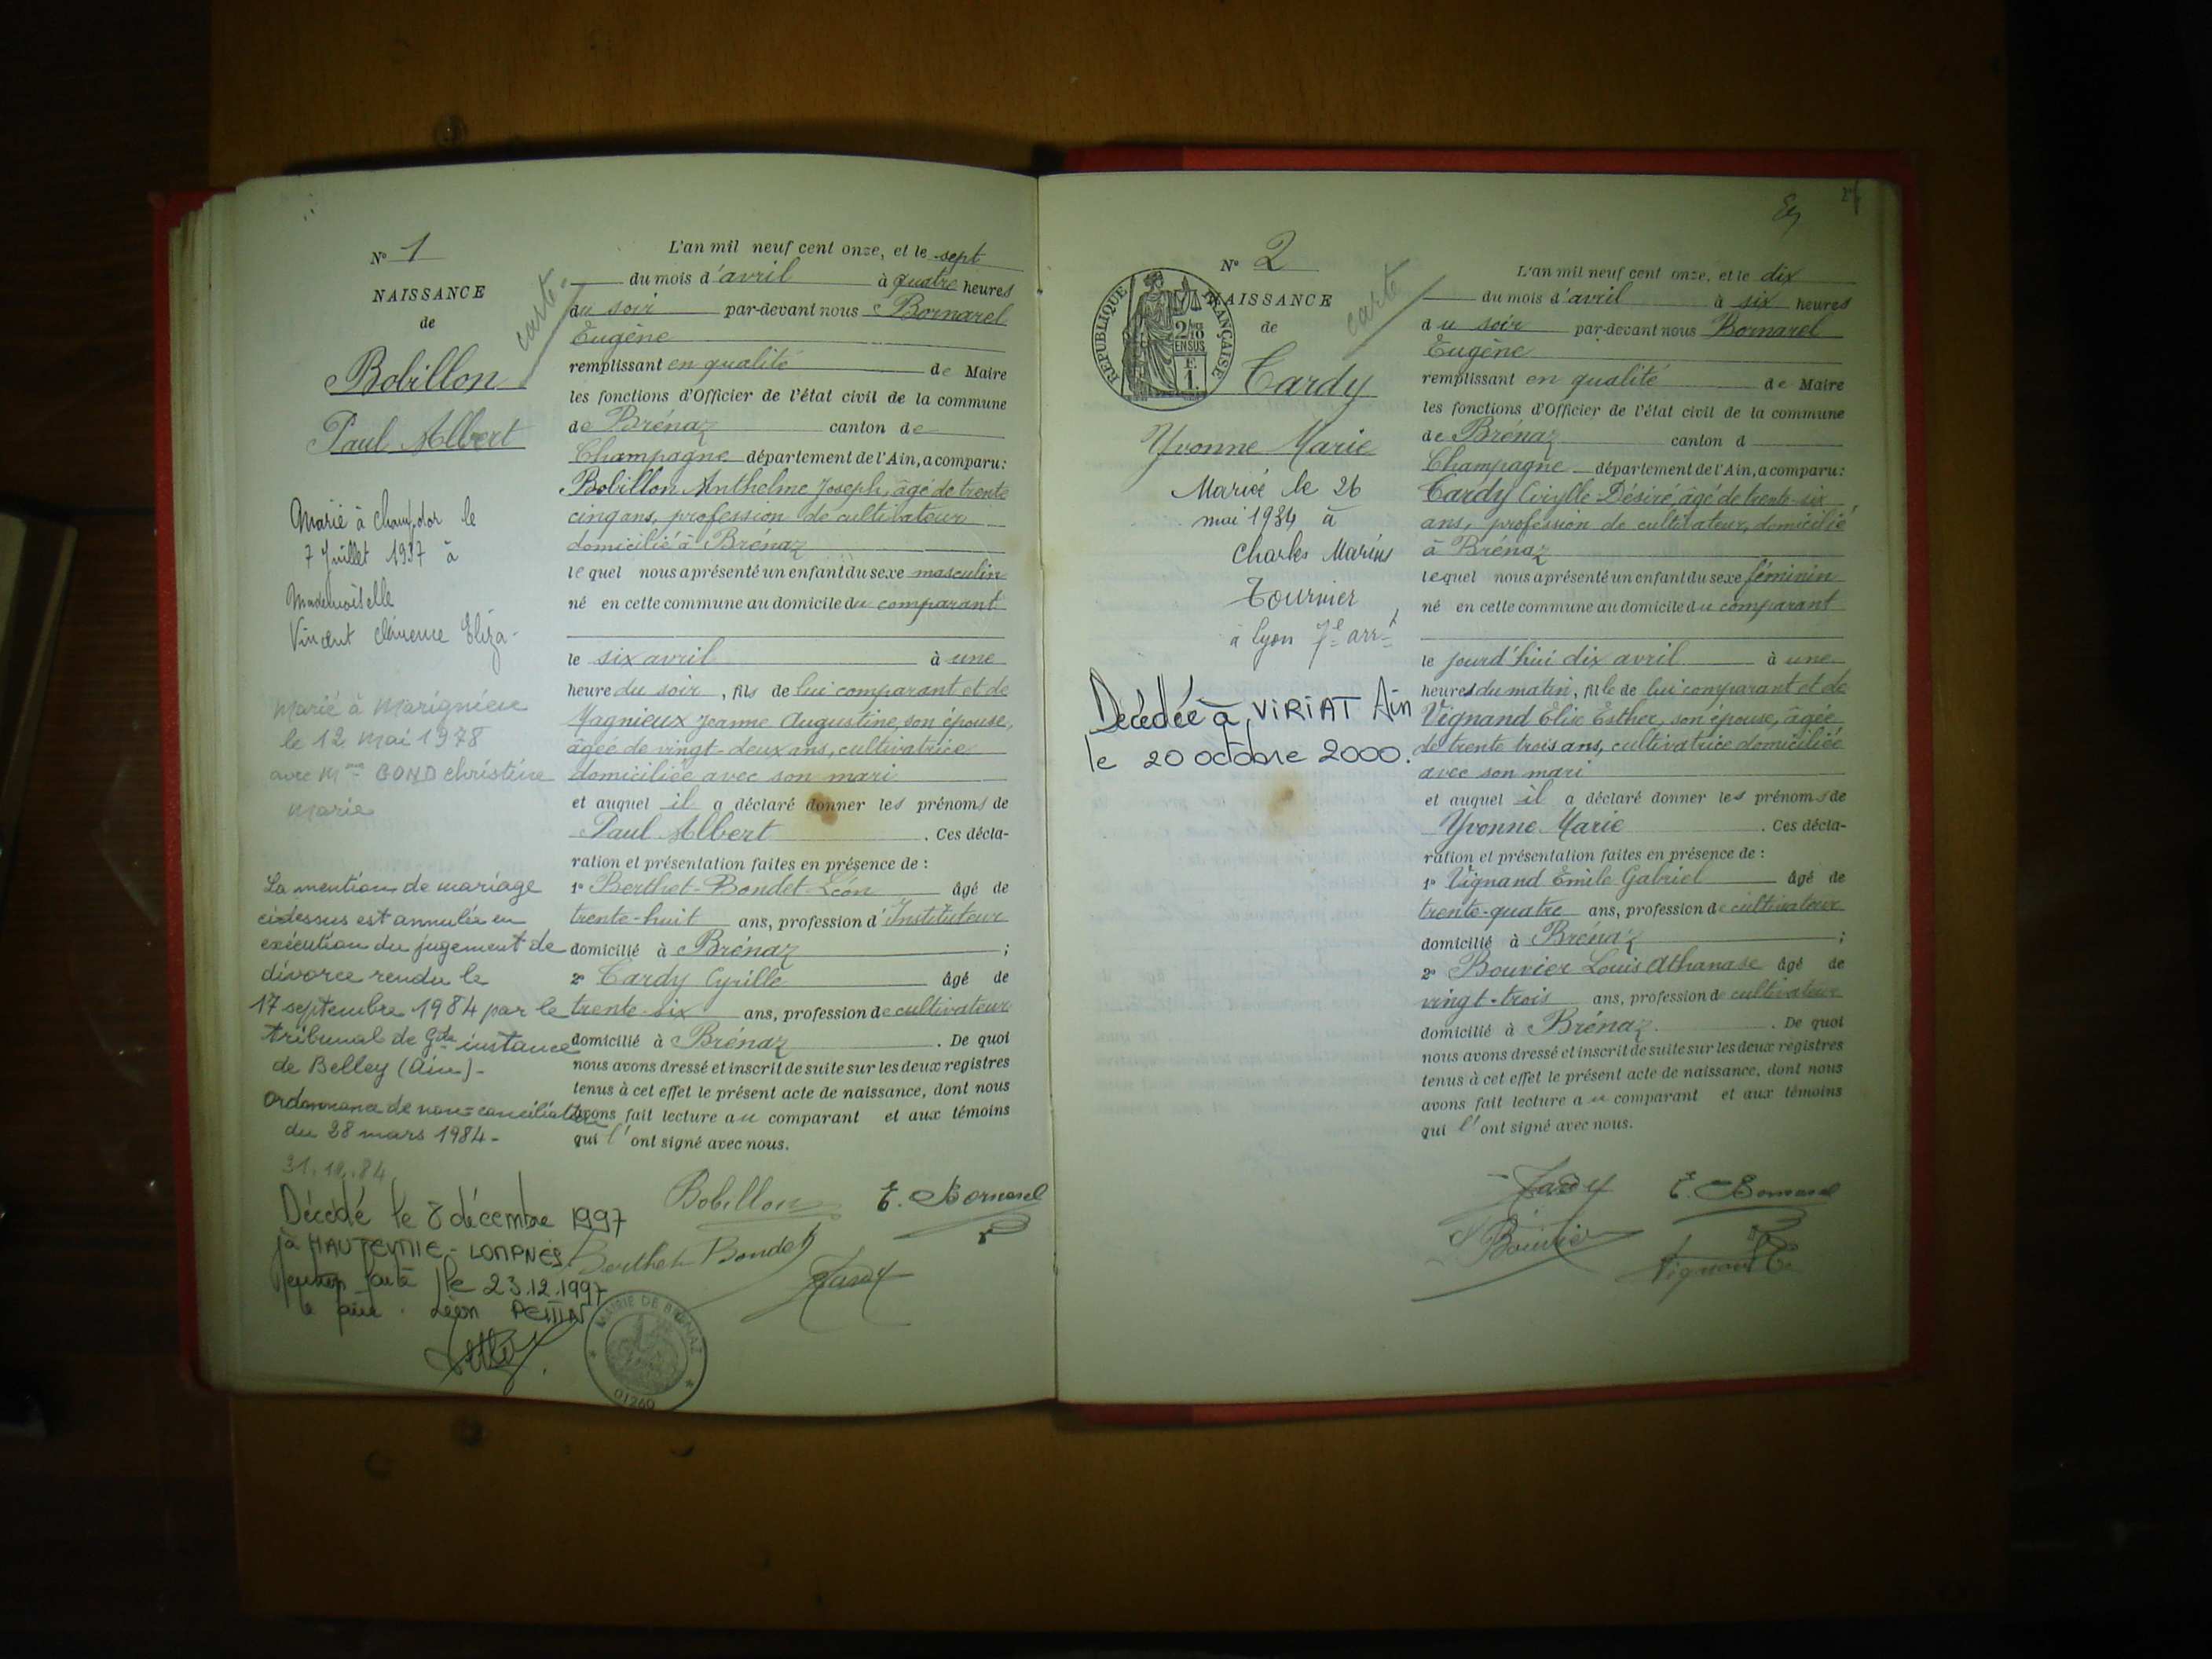 N° 1
NAISSANCE
de
Bobillon
Paul Albert
carte
Marié à Champdor le
7 Juillet 1937 à
Mademoiselle
Vincent Clémence Eliza-
Marié à Marignieu
le 12 Mai 1978
avec Mme GOND Christine
Marie
La mention de mariage
ci-dessus est annulée en
exécution du jugement de
divorce rendu le
17 septembre 1984 par le
tribunal de Gde instance
de Belley (Ain)-
Ordonnance de non-conciliation
du 28 mars 1984-
31.10.84
Décédé le 8 décembre 1997
à HAUTEVILLE-LOMPNES
faite le 23.12.1997
Léon
L'an mil neuf cent onze, et le sept
du mois d'avril à quatre heures
du soir par-devant nous Bornarel
Eugène
remplissant en qualité de Maire
les fonctions d'Officier de l'état civil de la commune
de Brénaz canton de
Champagne département de l'Ain, a comparu:
Bobillon Anthelme Joseph, âgé de trente
cinq ans, profession de cultivateur
domicilié à Brénaz
lequel nous a présenté un enfant du sexe masculin
né en cette commune au domicile du comparant
le six avril à une
heure du soir, fils de lui comparant et de
Magnieux Jeanne Augustine, son épouse,
âgée de vingt-deux ans, cultivatrice
domiciliée avec son mari
et auquel il a déclaré donner les prénoms de
Paul Albert. Ces décla-
ration et présentation faites en présence de :
1° Berthet-Bondet Léon âgé de
trente-huit ans, profession d'Instituteur
domicilié à Brénaz ;
2° Tardy Cyrille âgé de
trente-six ans, profession de cultivateur
domicilié à Brénaz. De quoi
nous avons dressé et inscrit de suite sur les deux registres
tenus à cet effet le présent acte de naissance, dont nous
avons fait lecture au comparant et aux témoins
qui l'ont signé avec nous.
Bobillon E. Bornarel
Berthet-Bondet Tardy
MAIRIE DE BRENAZ
01260
27
N° 2
NAISSANCE
de
REPUBLIQUE FRANÇAISE
2/10 EN SUS
F.
1.
Tardy
Yvonne Marie
carte
Mariée le 26
mai 1934 à
Charles Marius
Tournier,
à Lyon 7e arrt
Décédée à VIRIAT Ain
le 20 octobre 2000.
L'an mil neuf cent onze, et le dix
du mois d'avril à six heures
du soir par-devant nous Bornarel
Eugène
remplissant en qualité de Maire
les fonctions d'Officier de l'état civil de la commune
de Brénaz canton d
Champagne département de l'Ain, a comparu:
Tardy Cirylle Désiré, âgé de trente-six
ans, profession de cultivateur, domicilié
à Brénaz
lequel nous a présenté un enfant du sexe féminin
né en cette commune au domicile du comparant
le jourd'hui dix avril à une
heures du matin, fille de lui comparant et de
Vignand Elise Esther, son épouse, âgée
de trente trois ans, cultivatrice domiciliée
avec son mari
et auquel il a déclaré donner les prénoms de
Yvonne Marie. Ces décla-
ration et présentation faites en présence de :
1° Vignand Emile Gabriel âgé de
trente-quatre ans, profession de cultivateur
domicilié à Brénaz ;
2° Bouvier Louis Athanase âgé de
vingt-trois ans, profession de cultivateur
domicilié à Brénaz. De quoi
nous avons dressé et inscrit de suite sur les deux registres
tenus à cet effet le présent acte de naissance, dont nous
avons fait lecture au comparant et aux témoins
qui l'ont signé avec nous.
Tardy E. Bornarel
Bouvier Vignand E